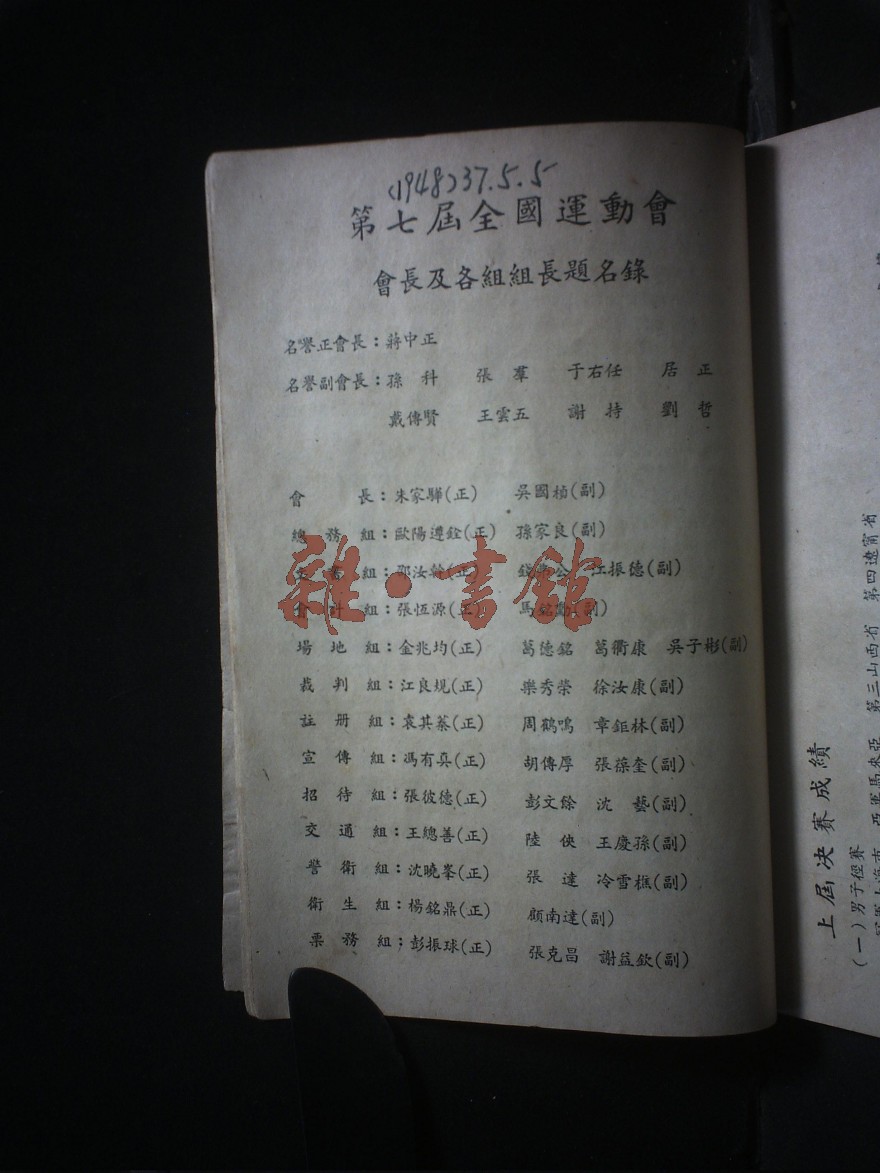 (1948)37.5.5
第七屆全國運動會
會長及各組組長題名錄
名譽正會長：蔣中正
名譽副會長：孫　科　張　羣　于右任　居　正
戴傳賢　王雲五　謝　持　劉　哲
會　　長：朱家驊(正)　吳國楨(副)
總　務　組：歐陽遵銓(正)　孫家良(副)
組：邵汝幹(正)　江振德(副)
會　計　組：張恆源(正)　馬銘(副)
場　地　組：金兆均(正)　葛德銘　葛衢康　吳子彬(副)
裁　判　組：江良規(正)　樂秀榮　徐汝康(副)
註　册　組：袁其棻(正)　周鶴鳴　章鉅林(副)
宣　傳　組：馮有真(正)　胡傳厚　張葆奎(副)
招　待　組：張彼德(正)　彭文餘　沈　藝(副)
交　通　組：王總善(正)　陸　俠　王慶孫(副)
警　衛　組：沈曉峯(正)　張　達　冷雪樵(副)
衛　生　組：楊銘鼎(正)　顧南逵(副)
票　務　組：彭振球(正)　張克昌　謝益欽(副)
雜·書館
上屆決賽成績
(一)男子徑賽
第三山西省　第四遼甯省